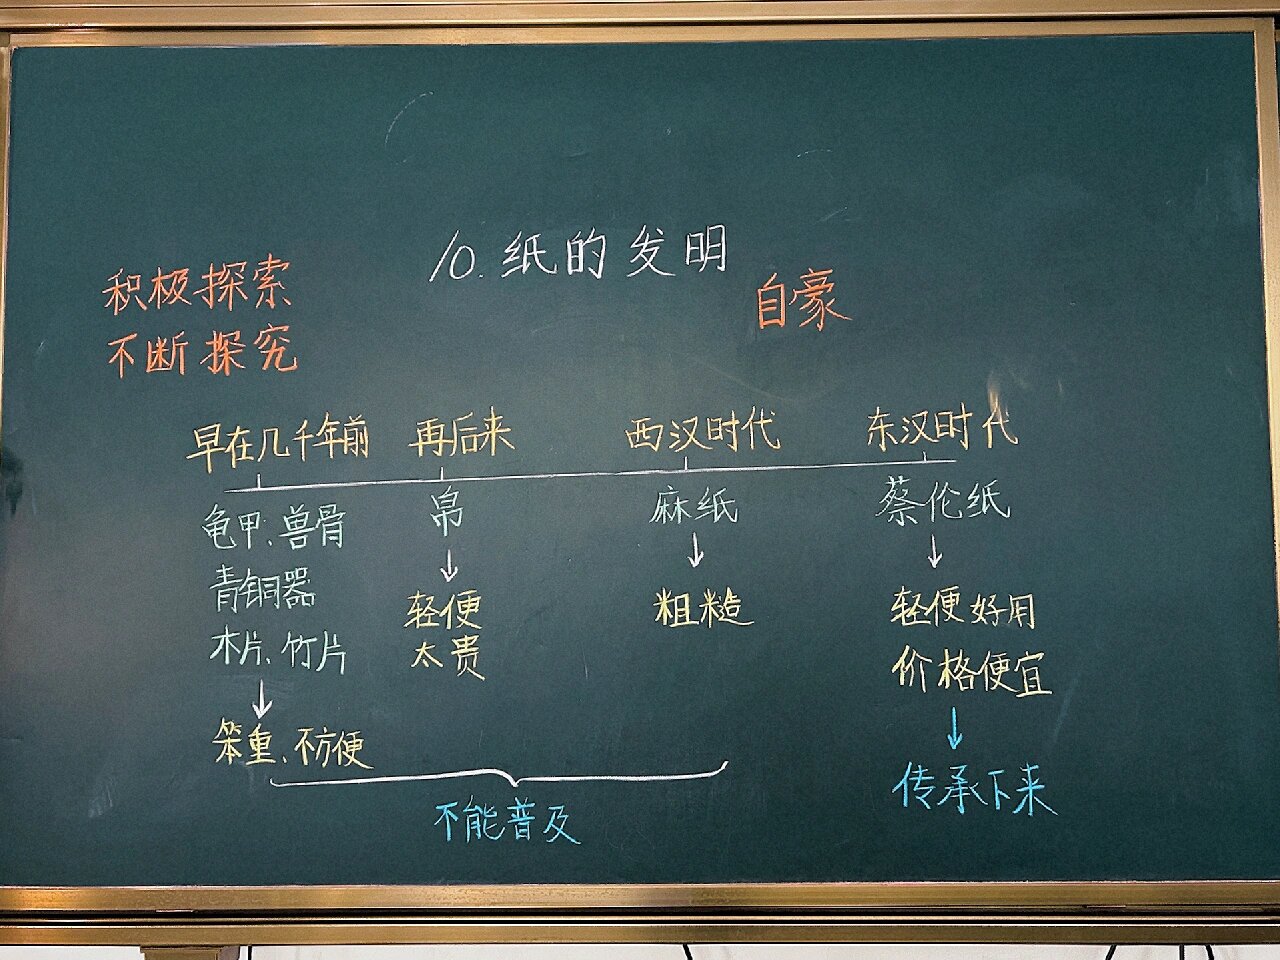 10.纸的发明
积极探索
不断探究
自豪
早在几千年前 再后来 西汉时代 东汉时代
龟甲、兽骨
青铜器
木片、竹片
笨重、不方便
帛
轻便
太贵
麻纸
粗糙
不能普及
蔡伦纸
轻便好用
价格便宜
传承下来